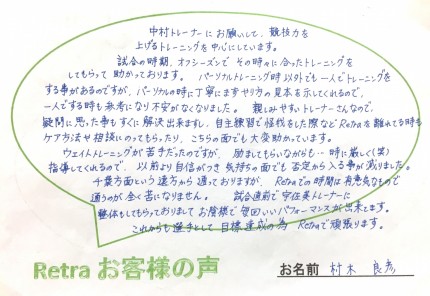 中村トレーナーにお願いして、競技力を
上げるトレーニングを中心にしています。
試合の時期、オフシーズンで その時々に合ったトレーニングを
してもらって 助かっております。パーソナルトレーニング時以外でも一人でトレーニングを
する事があるのですが、パーソナルの時に丁寧にまずやり方の見本を示してくれるので、
一人でする時も参考になり不安がなくなりました。親しみやすいトレーナーさんなので、
疑問に思った事もすぐに解決出来ますし、自主練習で怪我をした際などRetraを離れてる時も
ケア方法や相談にのってもらったり、こちらの面でも大変助かっています。
ウェイトトレーニングが苦手だったのですが、励ましてもらいながらも…時に厳しく(笑)
指導してくれるので、以前より自信がつき 気持ちの面でも否定から入る事が減りました。
千葉方面という遠方から通っておりますが、Retraでの時間は有意義なもので
通うのが全く苦になりません。試合直前で宇佐美トレーナーに
整体もしてもらっておりまして お陰様で毎回いいパフォーマンスが出来てます。
これからも選手として目標達成の為 Retraで頑張ります。
Retra お客様の声
お名前 村木 良彦